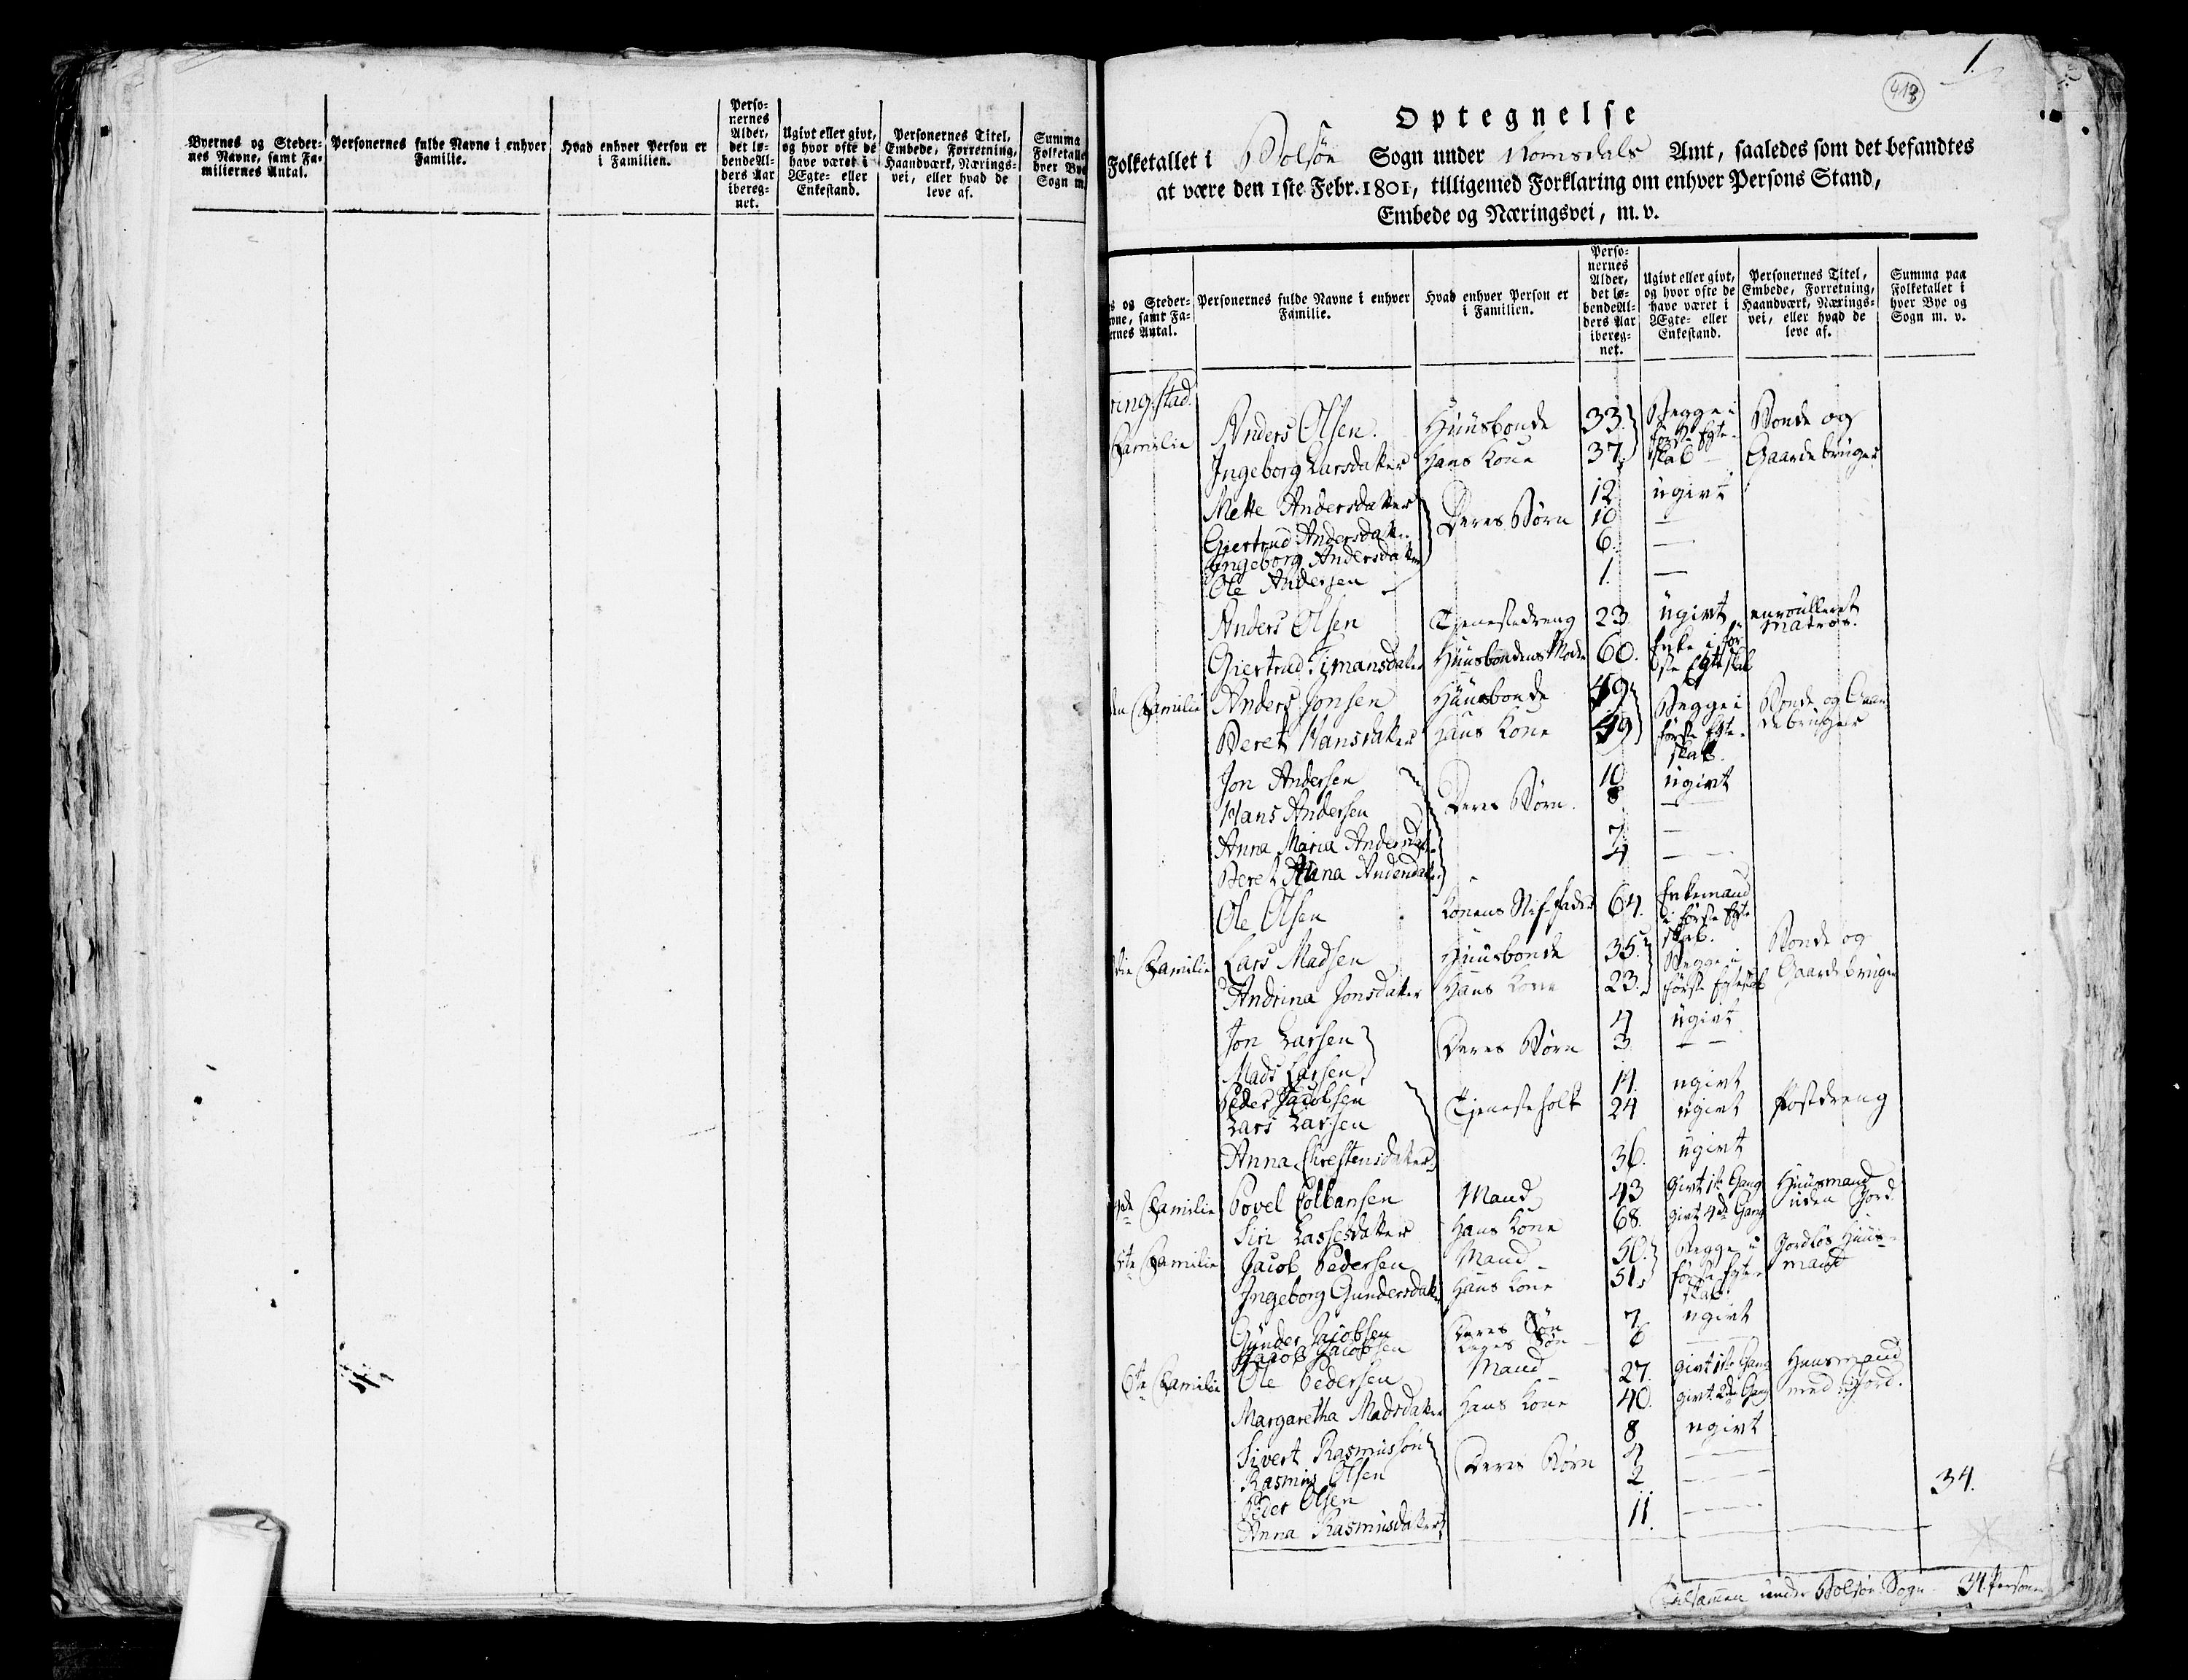 Byernes og Steder-
nes Navne, samt Fa-
miliernes Antal.
Personernes fulde Navne i enhver
Familie.
Hvad enhver Person er
i Familien.
Perso-
nernes
Alder,
det lø-
bende Al-
ders Aar
ibereg-
net.
Ugivt eller givt,
og hvor ofte de
have været i
Ægte- eller
Enkestand.
Personernes Titel,
Embede, Forretning,
Haandværk, Nærings-
vei, eller hvad de
leve af.
Summa
Folketalle
hver Bye
Sogn m.
1.
413
Optegnelse
Folketallet i Bolsøe Sogn under Romsdals Amt, saaledes som det befandtes
at være den 1ste Febr. 1801, tilligemed Forklaring om enhver Persons Stand,
Embede og Næringsvei, m. v.
s og Steder-
vne, samt Fa-
ernes Antal.
Personernes fulde Navne i enhver
Familie.
Hvad enhver Person er
i Familien.
Perso-
nernes
Alder,
det lø-
bende Al-
ders Aar
ibereg-
net.
Ugivt eller givt,
og hvor ofte de
have været i
Ægte- eller
Enkestand.
Personernes Titel,
Embede, Forretning,
Haandværk, Nærings-
vei, eller hvad de
leve af.
Summa paa
Folketallet i
hver Bye og
Sogn m. v.
ringstad.
Familie Anders Olsen. Huusbonde 33. Begge i første Egte- skab Bonde og
Ingeborg Larsdatter Hans Kone 37. Gaardebruger
Mette Andersdatter Deres Børn 12 ugivt
Giertrud Andersdatter 10 —
Ingeborg Andersdatter 6. —
Ole Andersen 1. —
Anders Olsen Tjenestedreng 23 ugivt enroulleret Matros.
Giertrud Timansdatter Huusbondens Moder 60. Enke i før- ste Egteskab
den Familie Anders Jonsen Huusbonde 49 Begge i første Egte- skab. Bonde og Gaar-
debruger
Beret Hansdatter Hans Kone 49
Jon Andersen Deres Børn. 10 ugivt
Hans Andersen 8 —
Anna Maria Andersdat. 7 —
Beret Anna Andersdatter 4 —
Ole Olsen Konens Stif-fader 64. Enkemand i første Egte skab.
die Familie Lars Madsen Huusbonde 35. Begge i første Egteskab Bonde og
Andrina Jonsdatter Hans Kone 23. Gaardebruger
Jon Larsen Deres Børn 4 ugivt
Mads Larsen 3 —
Peder Jacobsen Tjenestefolk 14. ugivt
Lars Larsen 24 ugivt Postdreng
Anna Christensdatter 36. ugivt
4de Familie Povel Colbansen Mand 43 Givt 1ste Gang Huusmand
uden Jord
Siri Lassesdatter Hans Kone 68. Givt 4de Gang
5te Familie Jacob Pedersen Mand 50. Begge i første Egte- skab Jordløs Huus-
mand
Ingeborg Gundersdatter Hans Kone 51.
Gunder Jacobsen Deres Søn 7 ugivt
Jacob Jacobsen Deres Søn 6 —
6te Familie Ole Pedersen Mand 27. Givt 1ste Gang Huusmand
Margaretha Madsdatter Hans Kone 40. Givt 2den Gang med Jord.
Sivert Rasmussøn Deres Børn 8 ugivt
Rasmus Olsen 4 —
Peder Olsen 2 —
Anna Rasmusdatter 11. —
34.
Tilsamen under Bolsøe Sogn - 34. Personer